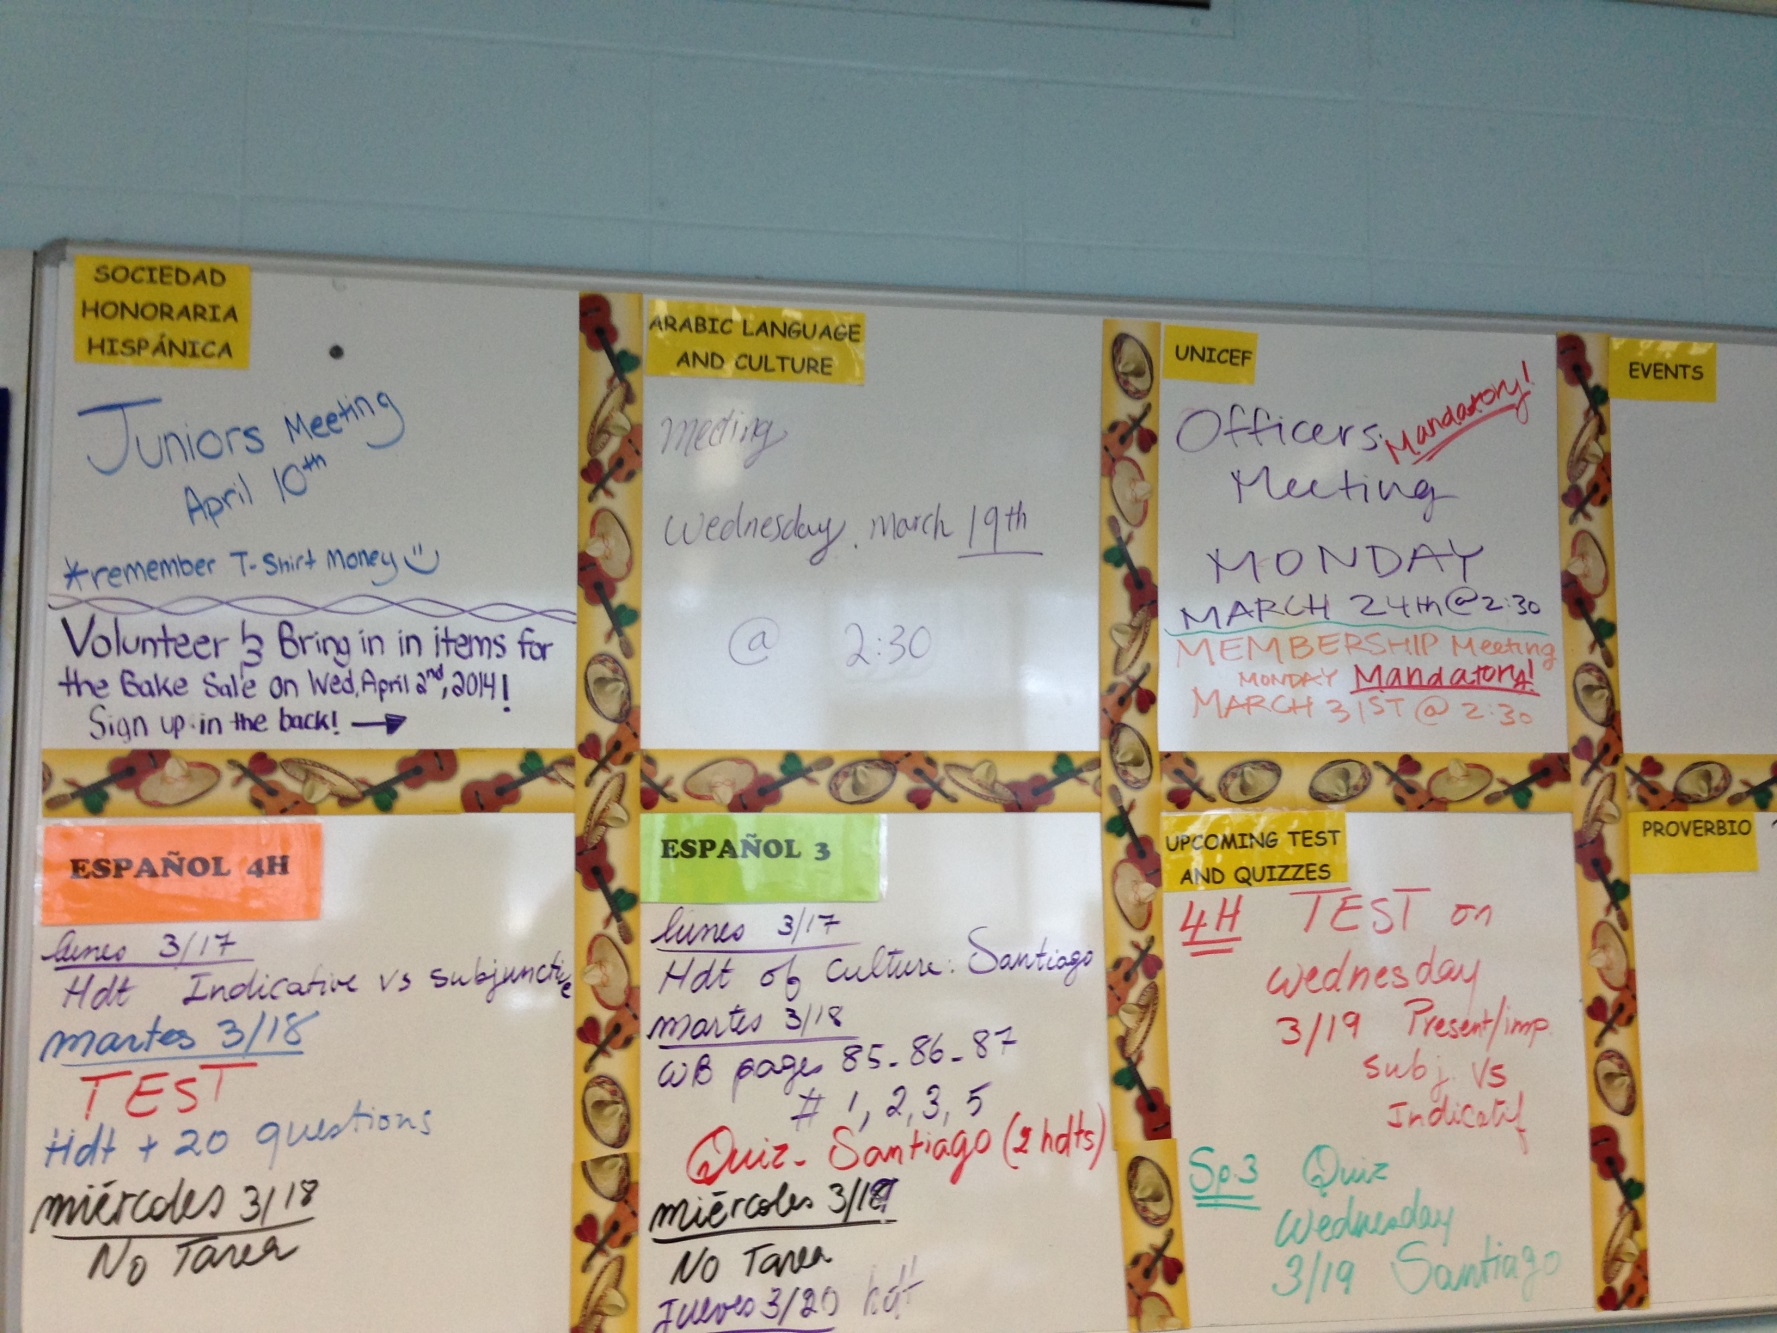 SOCIEDAD
HONORARIA
HISPÁNICA
Juniors Meeting
April 10th
*remember T-Shirt Money
Volunteer & Bring in in items for
the Bake Sale on Wed, April 2nd, 2014!
Sign up in the back! →
ARABIC LANGUAGE
AND CULTURE
Meeting
Wednesday, March 19th
@ 2:30
UNICEF
Officers Mandatory!
Meeting
MONDAY
MARCH 24th @ 2:30
MEMBERSHIP Meeting
MONDAY Mandatory!
MARCH 31ST @ 2:30
EVENTS
ESPAÑOL 4H
lunes 3/17
Hdt Indicative vs subjunctive
martes 3/18
TEST
Hdt + 20 questions
miércoles 3/18
No Tarea
ESPAÑOL 3
lunes 3/17
Hdt of Culture: Santiago
martes 3/18
WB pages 85-86-87
# 1, 2, 3, 5
Quiz - Santiago (2 hdts)
miércoles 3/19
No Tarea
Jueves 3/20 hdt
UPCOMING TEST
AND QUIZZES
4H TEST on
Wednesday
3/19 Present/imp.
subj. vs
Indicatif
Sp.3 Quiz
Wednesday
3/19 Santiago
PROVERBIO